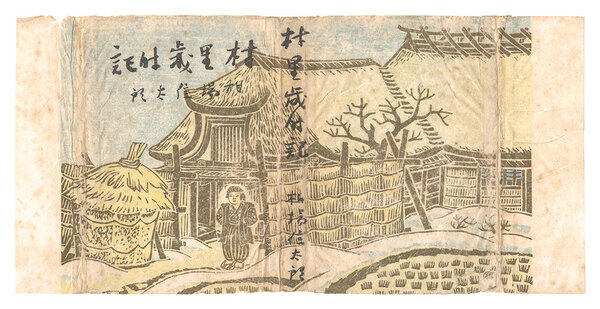 村里歳时記
相場信太郎
村里歳时記 相場信太郎